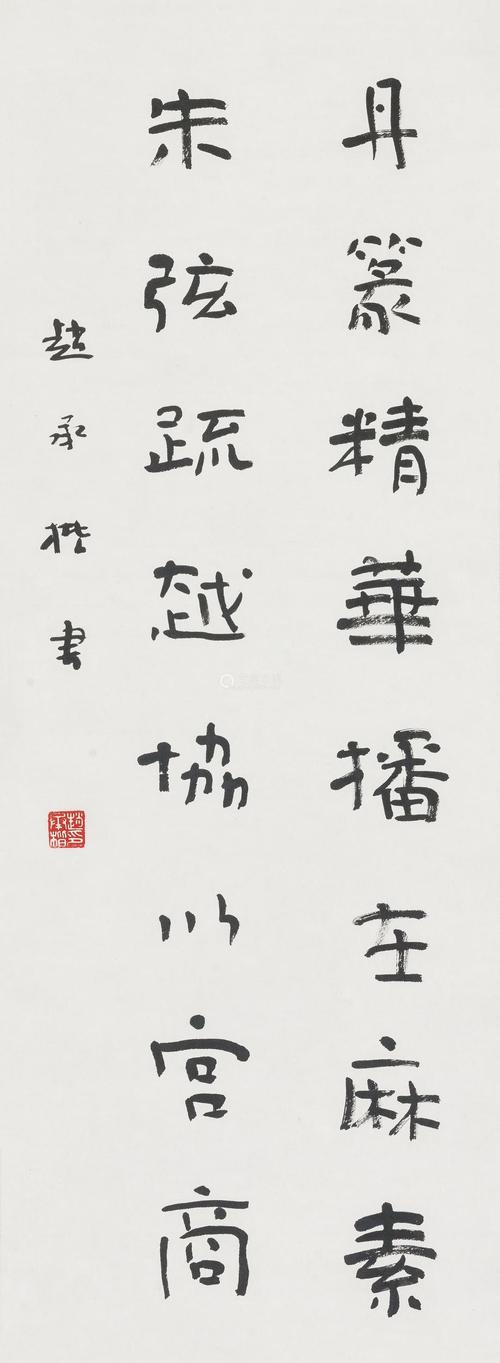 丹篆精華播在麻素
朱弦疏越協以宮商
趙承楷書